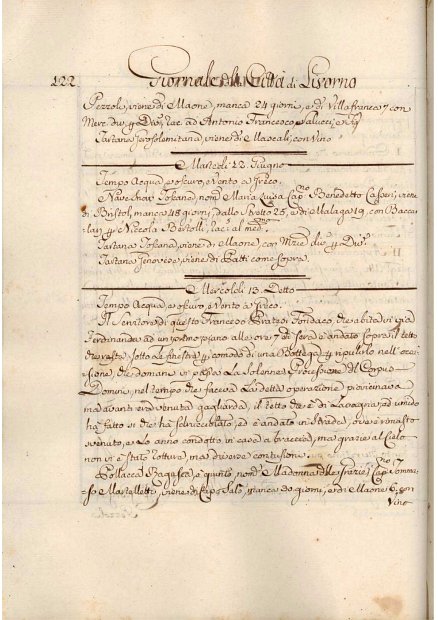 122 Giornale della Città di Livorno
Pezzoli, viene di Maone, manca 24 giorni, e di Villafranca 7 con
Merc. div. p Div. rac. ad Antonio Francesco Salucci, e
Tartana Jerosolemitana, viene di Mascali, con Vino
Martedì 12. Giugno
Tempo Acqua, e oscuro, e vento a Greco.
Nave Toscana nom. Maria Luisa Cap.no Benedetto Cafferi, viene
di Bristol, manca 48 giorni, dallo Stretto 25, e di Malaga 19, con Bacca-
lari p Niccola Bertolli, rac. al med.
Tartana Toscana, viene di Maone con Merc. div. p Div.
Tartana Genovese, viene di Patti come sopra.
Mercoledì 13. Detto
Tempo Acqua, e oscuro, e vento a Greco.
Il Servitore di questo Francesco Prato Fondaco, che abita in via
Ferdinanda ad un primo piano alle ore 7 di sera è andato sopra il tetto
che resta sotto le finestre p comodo di una Bottega p ripulirlo nell' occa-
sione, che domani vi passa la Solenne Processione del Corpus
Domini, nel tempo che faceva la detta operazione pioviccicava
ma avanti era venuta gagliarda, il tetto che è di Lavagna, ed umido
ha fatto sì che ha sdrucciolato, ed è andato in strada, ove è rimasto
svenuto, e lo anno condotto in casa a braccia, ma grazie al Cielo
non vi è stato rottura, ma diverse contusione.
Pollacca Ragusea, e quinto nom. Madonna delle Grazie, Cap.no Tomma-
so Martelletti, viene di Capo Salo, manca 20 giorni, e di Maone 6, con
Vino